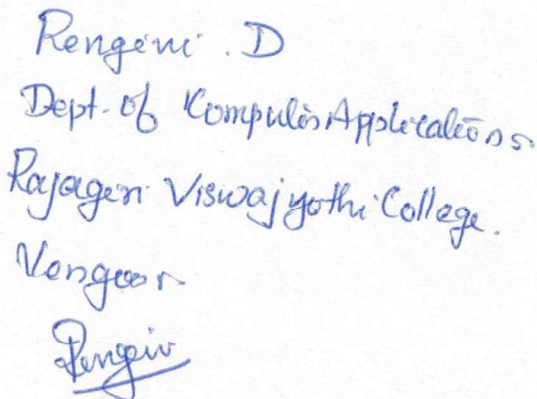 Rengini . D
Dept. of Computer Applications.
Rajagiri Viswajyothi College.
Vengoor.
Rengini